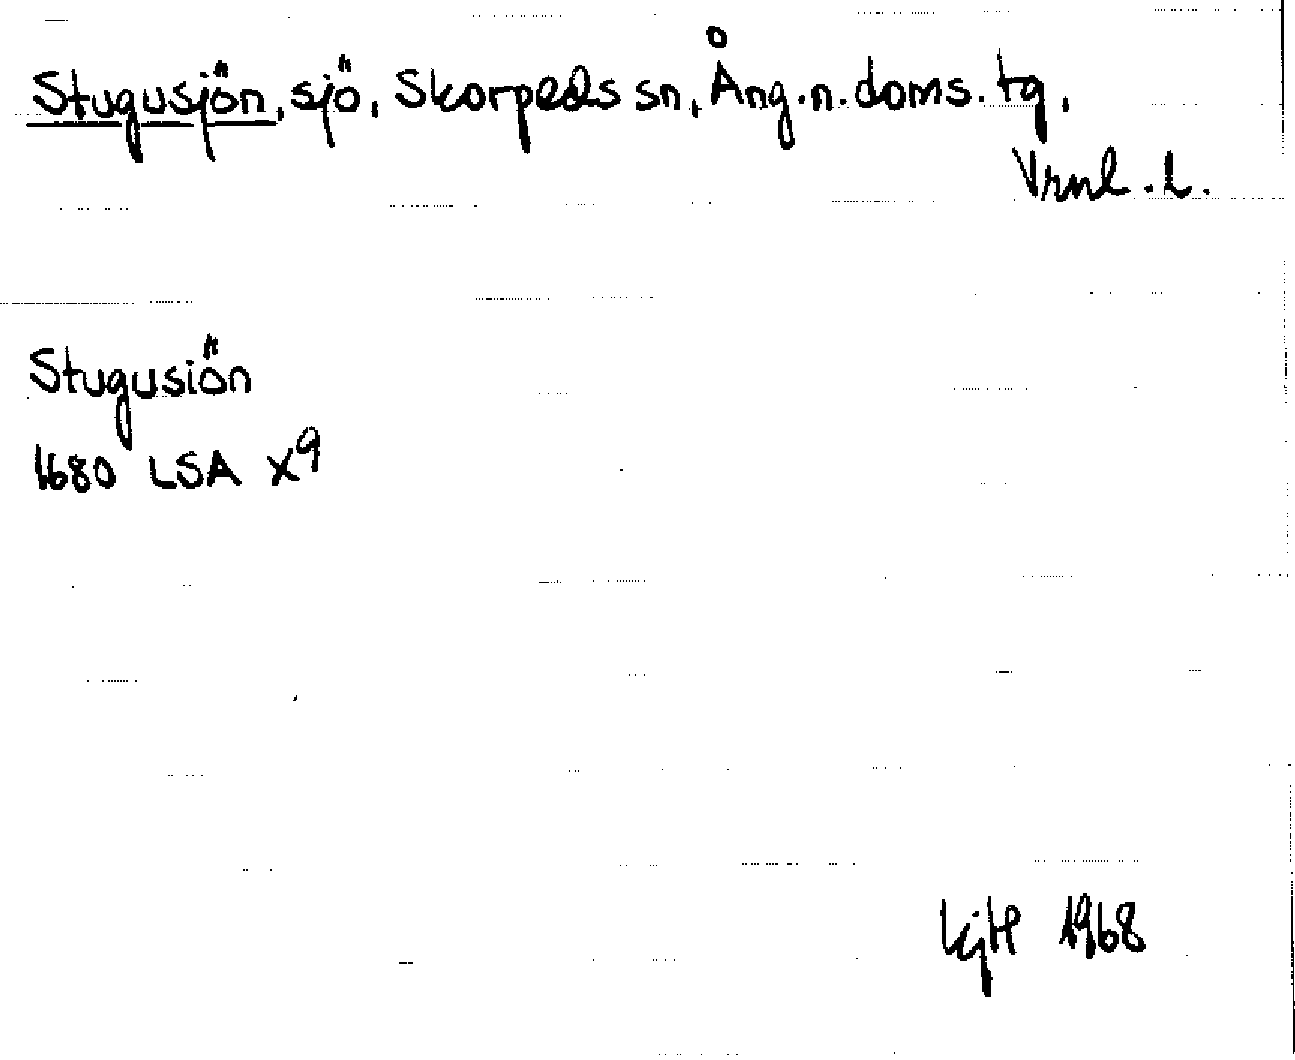 Stugusjön, sjö, Skorpeds sn, Ång.n.doms.tg,
Vrnl.l.
Stugusiön
1680 LSA X9
1968